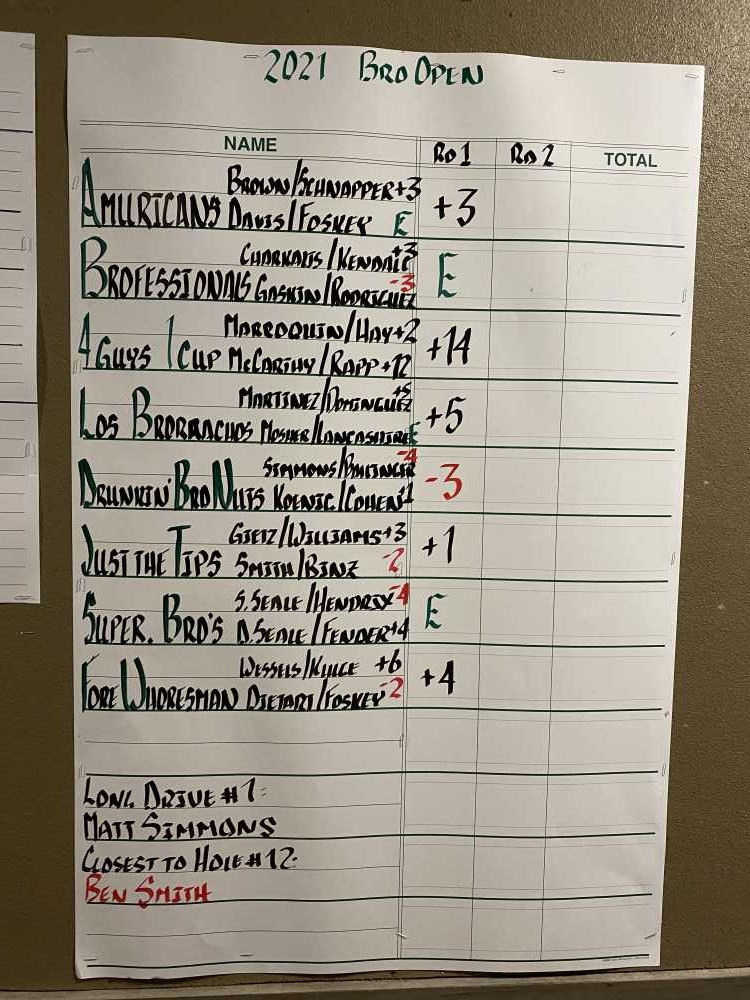 2021 BRO OPEN
NAME RD 1 RD 2 TOTAL
BROWN/SCHNAPPER +3
AMURICANS DAVIS/FOSKEY E +3
CHARKALIS/KENDALL +3
BROFESSIONALS GASKIN/RODRIGUEZ -3 E
MARROQUIN/HAY +2
4 GUYS 1 CUP MCCARTHY/RAPP +12 +14
MARTINEZ/DOMINGUEZ +5
LOS BRORRACHOS MOSHER/LANCASHIRE E +5
SIMMONS/BALINGER -4
DRUNKIN' BRO NUTS KOENIG/COHEN +1 -3
GIETZ/WILLIAMS +3
JUST THE TIPS SMITH/BINZ -2 +1
S.SEALE/HENDRIX -4
SUPER. BRO'S D.SEALE/FENDER +4 E
WESSELS/KYLE +6
FORE WHORESMAN DIETART/FOSKEY -2 +4
LONG DRIVE #7:
MATT SIMMONS
CLOSEST TO HOLE #12:
BEN SMITH